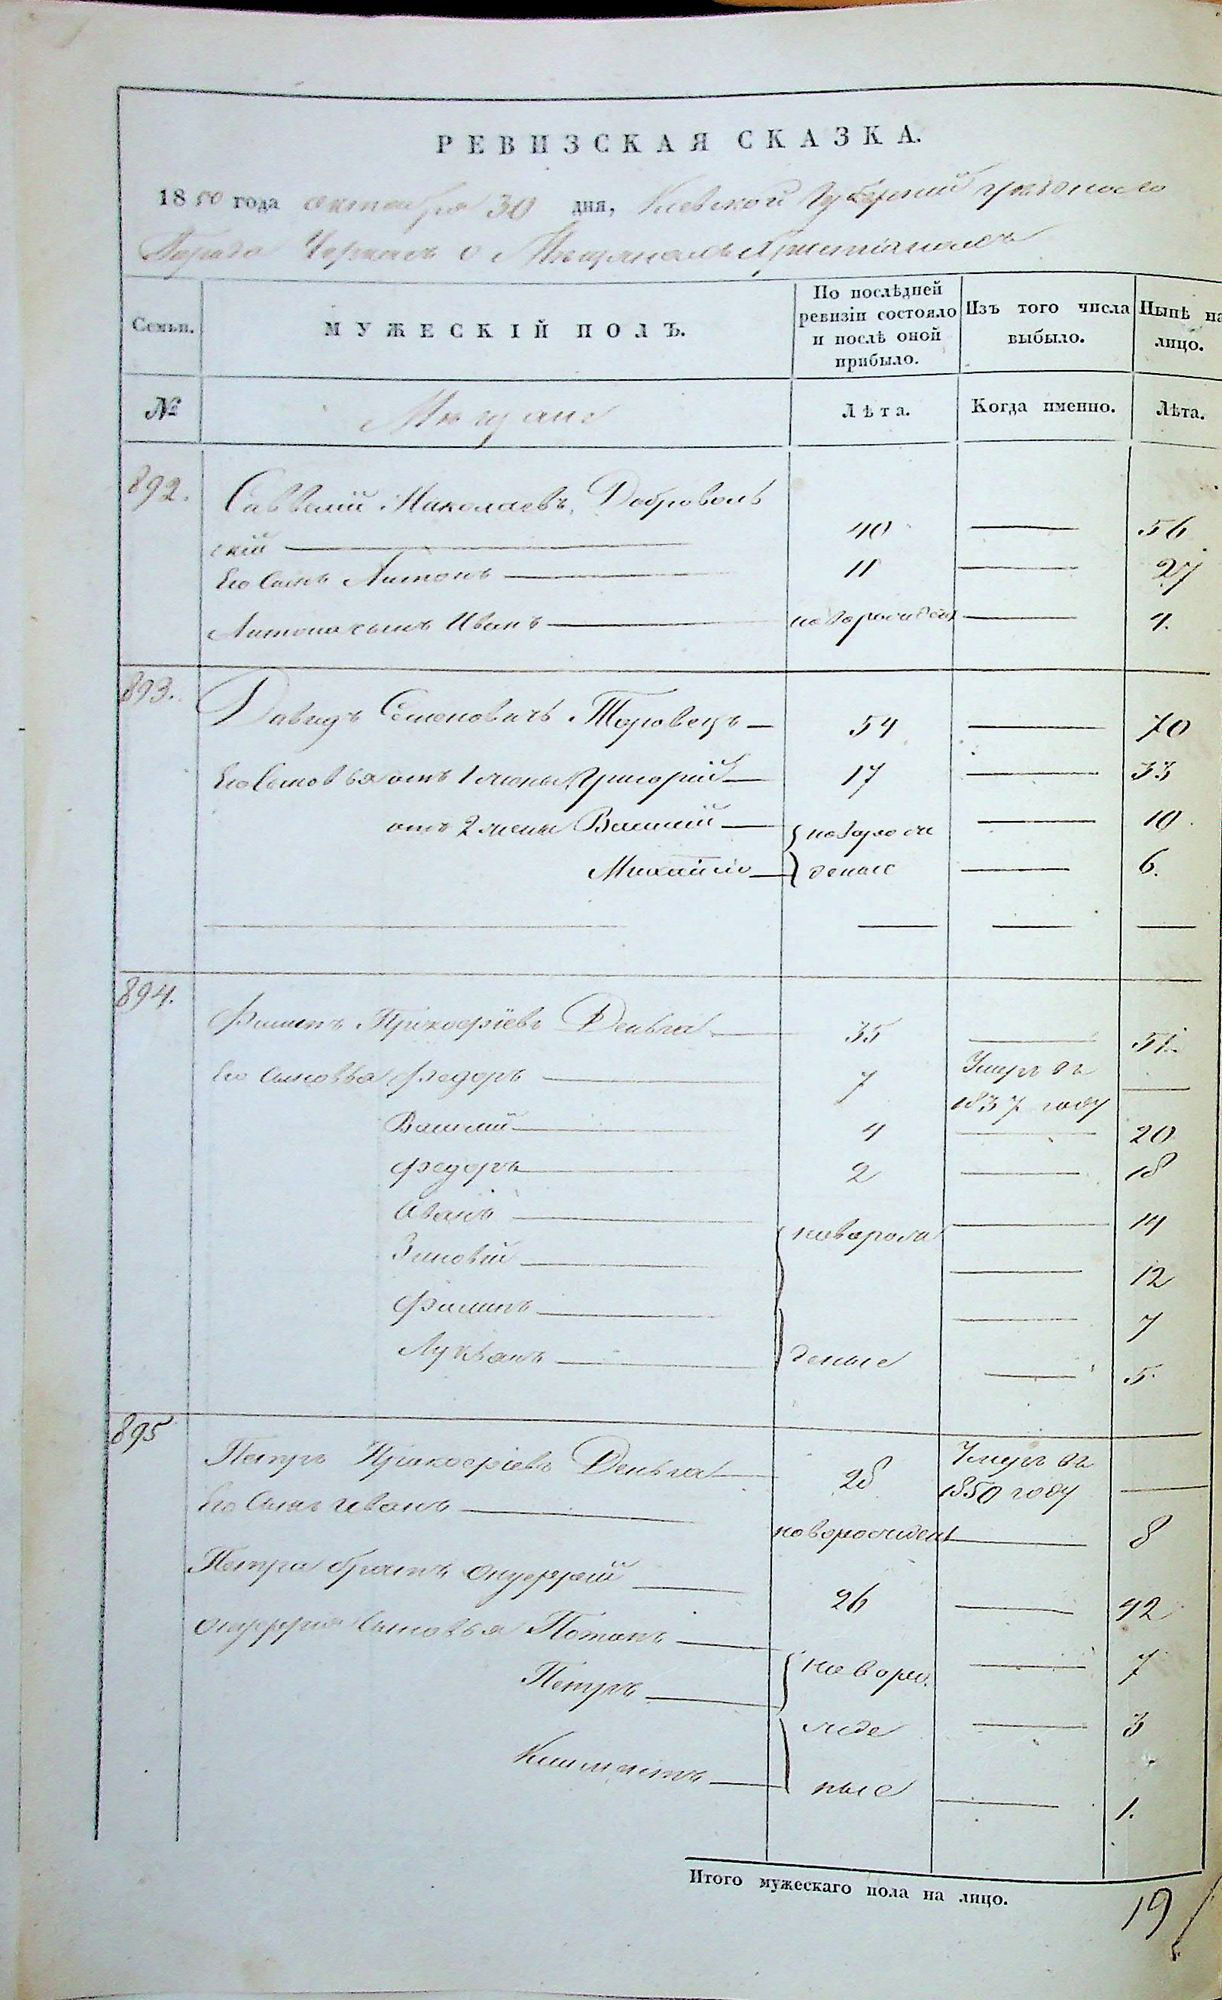 РЕВИЗСКАЯ СКАЗКА.
1850 года октября 30 дня, Киевской Губернии уезднаго
Города Черкасъ о Мещанахъ Христіанахъ
Семьи.
МУЖЕСКІЙ ПОЛЪ.
По послѣдней ревизіи состояло и послѣ оной прибыло.
Изъ того числа выбыло.
Нынѣ на лицо.
№
Мещане
Лѣта.
Когда именно.
Лѣта.
892.
Савелий Николаевъ Доброволь
скій 40 56
Его Сынъ Антонъ 11 27
Антона сынъ Иванъ новорожденъ 4.
893.
Давидъ Семеновичъ 54 70
Его Сыновья отъ 1 жены Григорий 17 33
отъ 2 жены Василий новорож 10.
Михайло деные 6.
894.
Филипъ Прокофіевъ Деньга 35 51.
Его Сыновья Федоръ 7 Умеръ въ
1837 году
Василий 4 20
Федоръ 2 18
Иванъ новорож 14
Зиновій 12
Филипъ 7
Лукьянъ деные 5.
895
Петръ Прокофіевъ Деньга 28 Умеръ въ
Его Сынъ Иванъ 1850 году
новорожденъ 8
Петра братъ Онуфрій 26 42
Онуфрия Сыновья Потапъ новоро 7
Петръ жде 3
Климентъ ные 1.
Итого мужескаго пола на лицо. 19